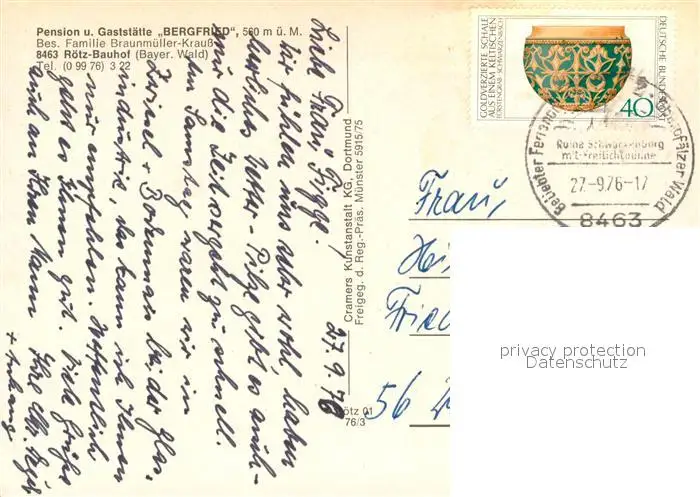 Pension u. Gaststätte „BERGFRIED", 560 m ü. M.
Bes. Familie Braunmüller-Krauß
8463 Rötz-Bauhof (Bayer. Wald)
Tel. (0 99 76) 3 22
27.9.76
Liebe Frau
wir fühlen uns sehr wohl haben
herrliches Wetter - Pilze gibt es auch
nur die Zeit vergeht zu schnell.
Am Samstag waren wir in
Zwiesel + Bodenmais bei der Glas-
industrie, das kann ich Ihnen
nur empfehlen. Hoffentlich
geht es Ihnen gut. Viele Grüße
auch an Ihren Mann Ihre
+ Anhang
Cramers Kunstanstalt KG, Dortmund
Freigeg. d. Reg.-Präs. Münster 5915/75
Rötz 01
76/3
GOLDVERZIERTE SCHALE
AUS EINEM KELTISCHEN
FÜRSTENGRAB · SCHWARZENBACH
DEUTSCHE BUNDESPOST
40
Beliebter Ferienort
Oberpfälzer Wald
Ruine Schwarzenburg
mit Freilichtbühne
27.-9.76-17
8463
Frau
56
privacy protection
Datenschutz